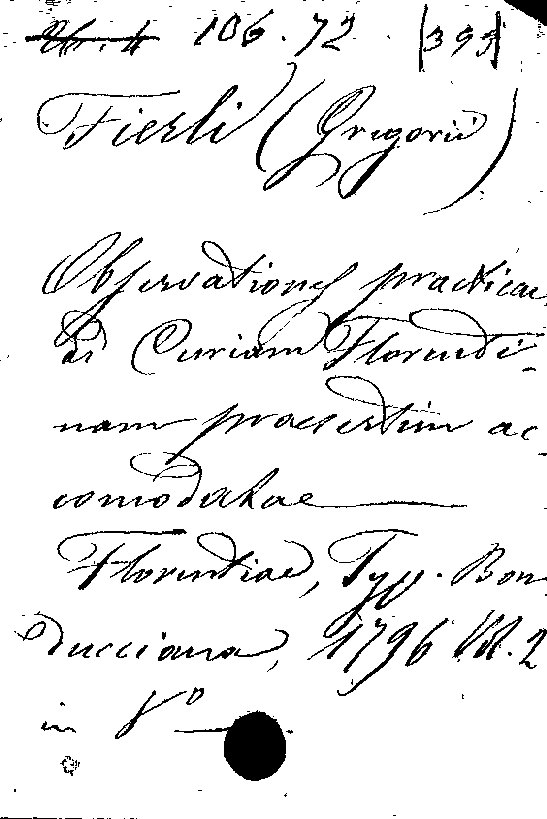 106.72. |399|
Fierli (Gregorii)
Observationes practicae
ad Curiam Florenti-
nam praesertim ac-
comodatae
Florentiae, Typ. Bon
ducciana, 1796 Vol. 2
in 8°